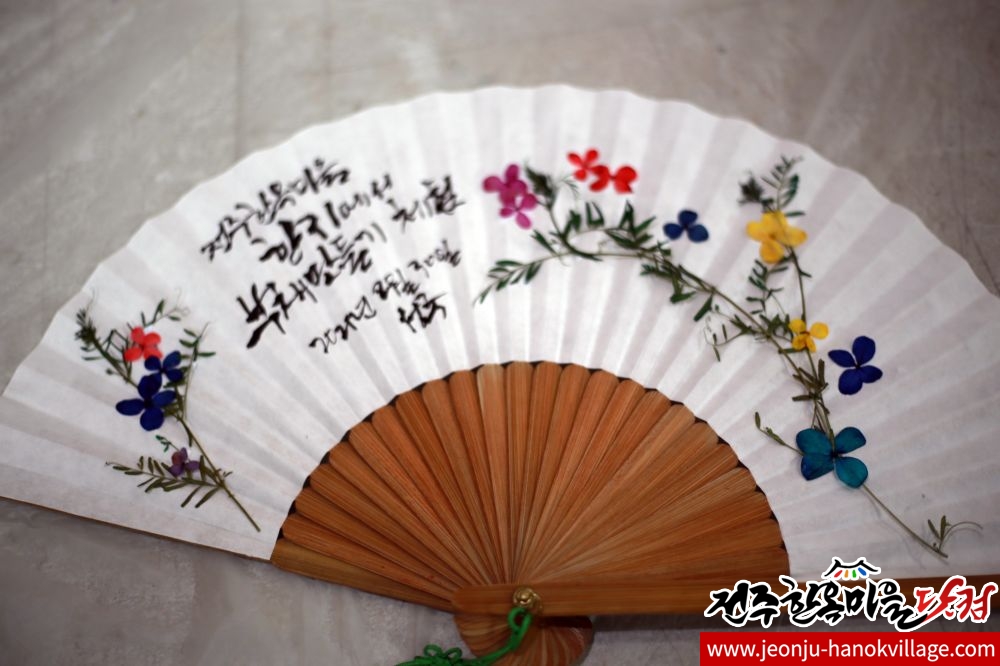 전주한옥마을
한지에서
부채만들기 체험
2021년 8월 30일
전주한옥마을닷컴
www.jeonju-hanokvillage.com